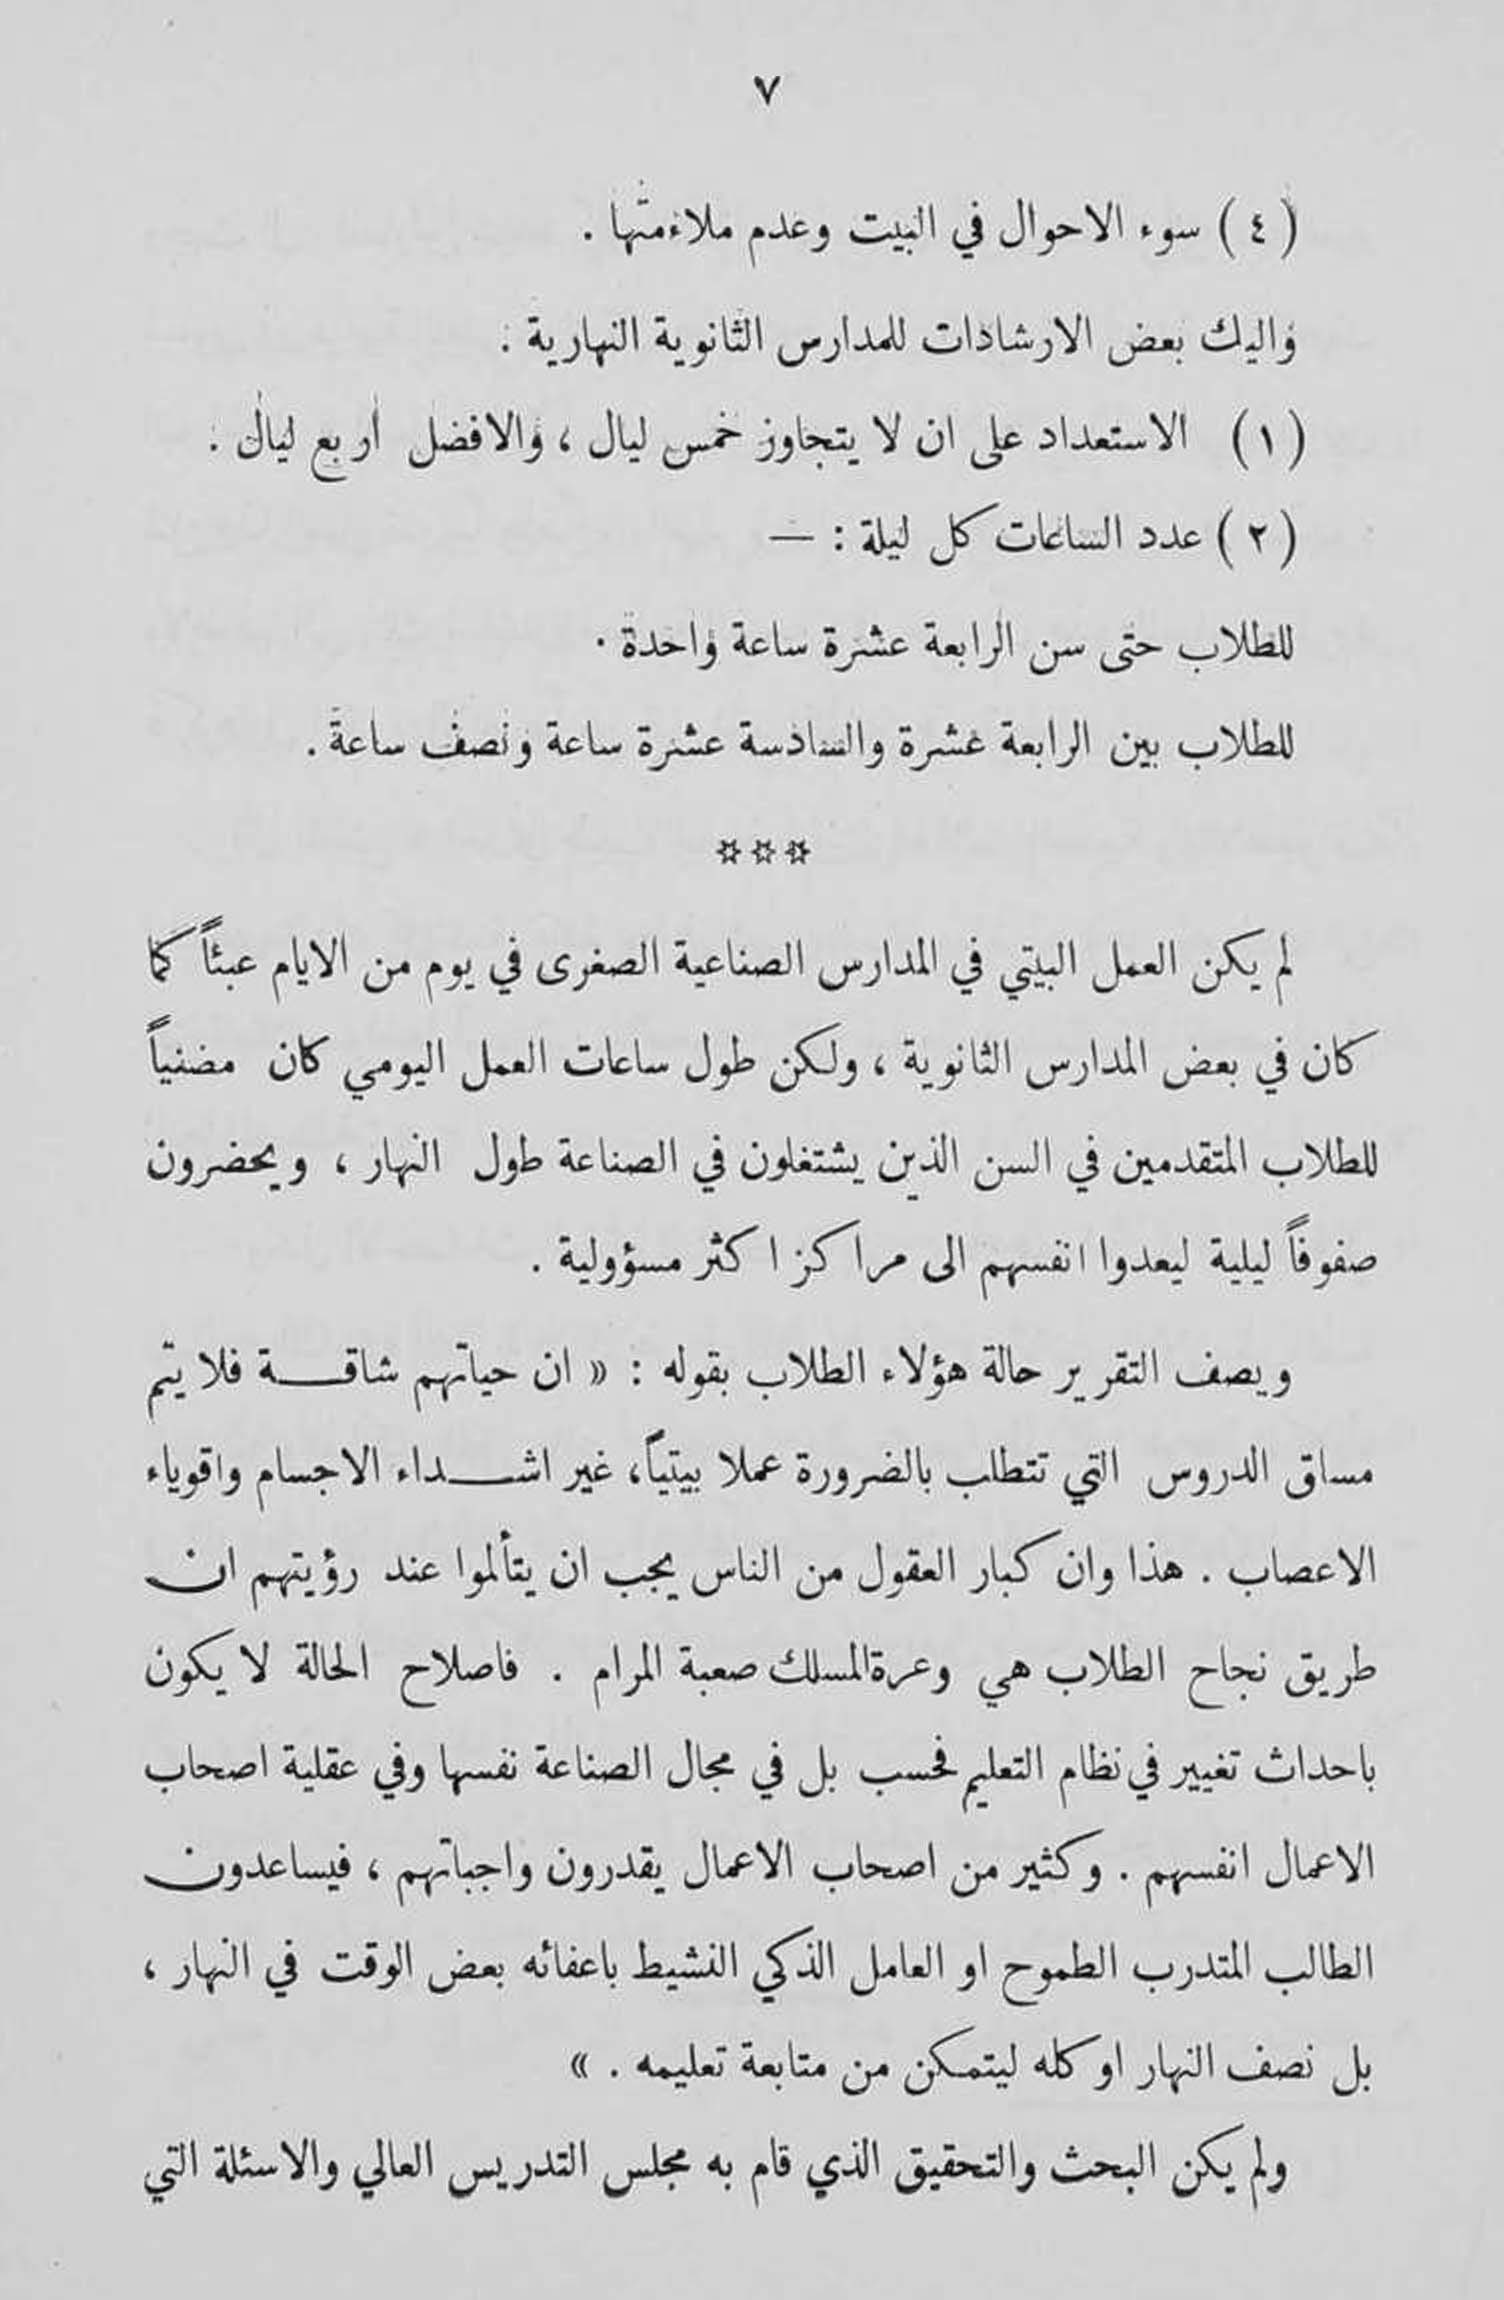 ٧
( ٤ ) سوء الاحوال في البيت وعدم ملاءمتها .
واليك بعض الارشادات للمدارس الثانوية النهارية :
( ١ ) الاستعداد على ان لا يتجاوز خمس ليال ، والافضل أربع ليال .
( ٢ ) عدد الساعات كل ليلة : —
للطلاب حتى سن الرابعة عشرة ساعة واحدة .
للطلاب بين الرابعة عشرة والسادسة عشرة ساعة ونصف ساعة .
***
لم يكن العمل البيتي في المدارس الصناعية الصغرى في يوم من الايام عبئاً كما
كان في بعض المدارس الثانوية ، ولكن طول ساعات العمل اليومي كان مضنياً
للطلاب المتقدمين في السن الذين يشتغلون في الصناعة طول النهار ، ويحضرون
صفوفاً ليلية ليعدوا انفسهم الى مراكز اكثر مسؤولية .
ويصف التقرير حالة هؤلاء الطلاب بقوله : « ان حياتهم شاقــة فلا يتم
مساق الدروس التي تتطلب بالضرورة عملا بيتياً، غير اشــداء الاجسام واقوياء
الاعصاب . هذا وان كبار العقول من الناس يجب ان يتألموا عند رؤيتهم ان
طريق نجاح الطلاب هي وعرة المسلك صعبة المرام . فاصلاح الحالة لا يكون
باحداث تغيير في نظام التعليم فحسب بل في مجال الصناعة نفسها وفي عقلية اصحاب
الاعمال انفسهم . وكثير من اصحاب الاعمال يقدرون واجباتهم ، فيساعدون
الطالب المتدرب الطموح او العامل الذكي النشيط باعفائه بعض الوقت في النهار ،
بل نصف النهار او كله ليتمكن من متابعة تعليمه . »
ولم يكن البحث والتحقيق الذي قام به مجلس التدريس العالي والاسئلة التي